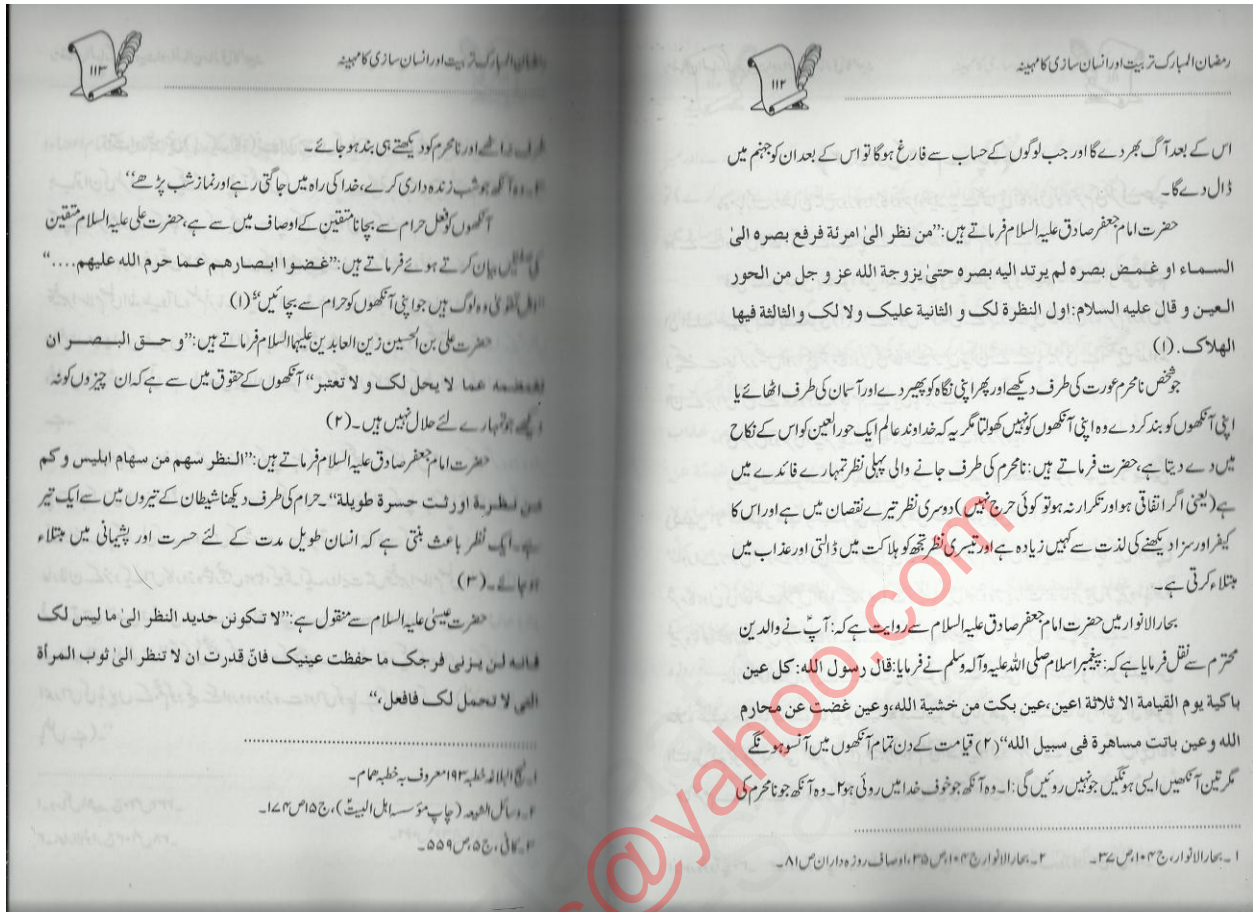 رمضان المبارک تربیت اور انسان سازی کا مہینہ
۱۱۲
اس کے بعد آگ بھر دے گا اور جب لوگوں کے حساب سے فارغ ہوگا تو اس کے بعد ان کو جہنم میں
ڈال دے گا۔
حضرت امام جعفر صادق علیہ السلام فرماتے ہیں: ”من نظر الیٰ امرئة فرفع بصره الیٰ
السماء او غمض بصره لم یرتد الیه بصره حتیٰ یزوجة الله عز و جل من الحور
العین و قال علیه السلام: اول النظرة لک و الثانیة علیک ولا لک والثالثة فیها
الهلاک. (۱)
جو شخص نامحرم عورت کی طرف دیکھے اور پھر اپنی نگاہ کو پھیر دے اور آسمان کی طرف اٹھائے یا
اپنی آنکھوں کو بند کر دے وہ اپنی آنکھوں کو نہیں کھولتا مگر یہ کہ خداوند عالم ایک حور العین کو اس کے نکاح
میں دے دیتا ہے، حضرت فرماتے ہیں: نامحرم کی طرف جانے والی پہلی نظر تمہارے فائدے میں
ہے (یعنی اگر اتفاقی ہو اور تکرار نہ ہو تو کوئی حرج نہیں) دوسری نظر تیرے نقصان میں ہے اور اس کا
کیفر اور سزا دیکھنے کی لذت سے کہیں زیادہ ہے اور تیسری نظر تجھ کو ہلاکت میں ڈالتی اور عذاب میں
مبتلاء کرتی ہے۔
بحار الانوار میں حضرت امام جعفر صادق علیہ السلام سے روایت ہے کہ: آپؑ نے والدین
محترم سے نقل فرمایا ہے کہ: پیغمبر اسلام صلی اللہ علیہ وآلہ وسلم نے فرمایا: قال رسول الله: کل عین
باکیة یوم القیامة الا ثلاثة اعین، عین بکت من خشیة الله، وعین غضت عن محارم
الله وعین باتت مساهرة فی سبیل الله“ (۲) قیامت کے دن تمام آنکھوں میں آنسو ہونگے
مگر تین آنکھیں ایسی ہونگیں جو نہیں روئیں گی: ۱۔ وہ آنکھ جو خوف خدا میں روئی ہو ۲۔ وہ آنکھ جو نامحرم کی
۱۔ بحار الانوار، ج ۱۰۴، ص ۳۷۔ ۲۔ بحار الانوار ج ۱۰۴، ص ۳۵، اوصاف روزہ داران ص ۸۱۔
رمضان المبارک تربیت اور انسان سازی کا مہینہ
۱۱۳
طرف نہ اٹھے اور نامحرم کو دیکھتے ہی بند ہو جائے۔
۳۔ وہ آنکھ جو شب زندہ داری کرے، خدا کی راہ میں جاگتی رہے اور نماز شب پڑھے“
آنکھوں کو فعل حرام سے بچانا متقین کے اوصاف میں سے ہے، حضرت علی علیہ السلام متقین
کی بیان کرتے ہوئے فرماتے ہیں: ”غضوا ابصارهم عما حرم الله علیهم....“
اہل تقویٰ وہ لوگ ہیں جو اپنی آنکھوں کو حرام سے بچائیں“ (۱)
حضرت علی بن الحسین زین العابدین علیہما السلام فرماتے ہیں: ”و حق البصر ان
عما لا یحل لک و لا تعتبر“ آنکھوں کے حقوق میں سے ہے کہ ان چیزوں کو نہ
دیکھے جو تمہارے لئے حلال نہیں ہیں۔ (۲)
حضرت امام جعفر صادق علیہ السلام فرماتے ہیں: ”النظر سهم من سهام ابلیس و کم
من نظریة اورثت حسرة طویلة“۔ حرام کی طرف دیکھنا شیطان کے تیروں میں سے ایک تیر
ہے۔ ایک نظر باعث بنتی ہے کہ انسان طویل مدت کے لئے حسرت اور پشیمانی میں مبتلاء
ہو جائے۔ (۳)
حضرت عیسیٰ علیہ السلام سے منقول ہے: ”لا تکونن حدید النظر الیٰ ما لیس لک
فانه لن یزنی فرجک ما حفظت عینیک فانّ قدرت ان لا تنظر الیٰ ثوب المرأة
التی لا تحمل لک فافعل،“
۱۔ نہج البلاغہ خطبہ ۱۹۳ معروف بہ خطبہ ہمام۔
۲۔ وسائل الشیعہ (چاپ مؤسسہ اہل البیتؑ)، ج ۱۵ ص ۱۷۴۔
۳۔ کافی، ج ۵، ص ۵۵۹۔
@yahoo.com